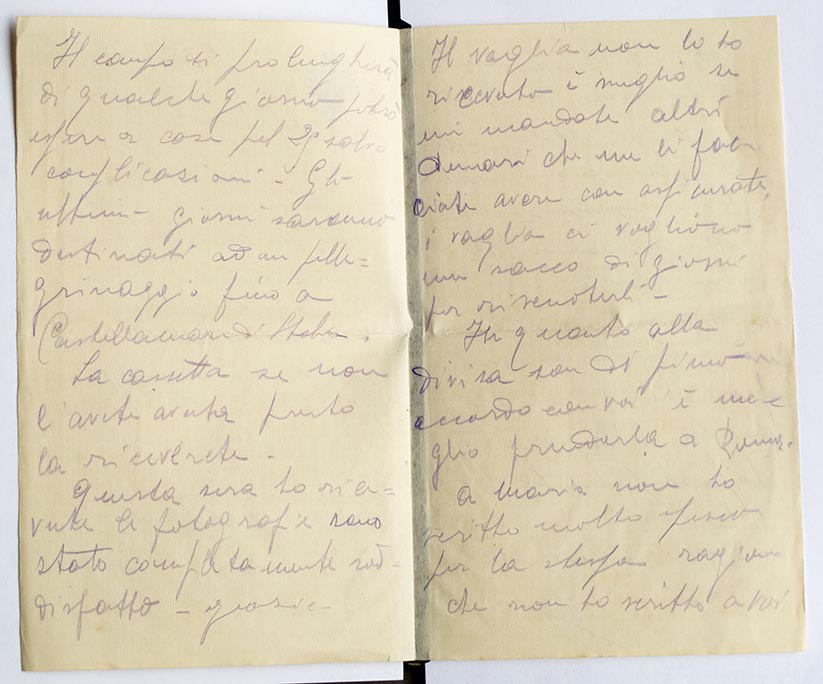 Il campo si prolungherà
di qualche giorno potrò
essere a casa pel 29 salvo
complicazioni - Gli
ultimi giorni saranno
destinati ad un pelle=
grinaggio fino a
Castellamare di Stabia.
La cassetta se non
l'avete avuta presto
la riceverete.
Questa sera ho rice=
vute le fotografie sono
stato completamente sod=
disfatto - grazie -
Il vaglia non lo ho
ricevuto è meglio se
mi mandate altri
denari che me li fac
ciate avere con assicurate,
i vaglia ci vogliono
un sacco di giorni
per riscuoterli -
In quanto alla
divisa son di pieno
accordo con voi è me=
glio prenderla a Roma.
a Maria non ho
scritto molto spesso
per la stessa ragione
che non ho scritto a voi.